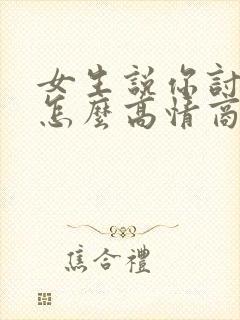 女生說你討
怎麼高情商
焦合禮